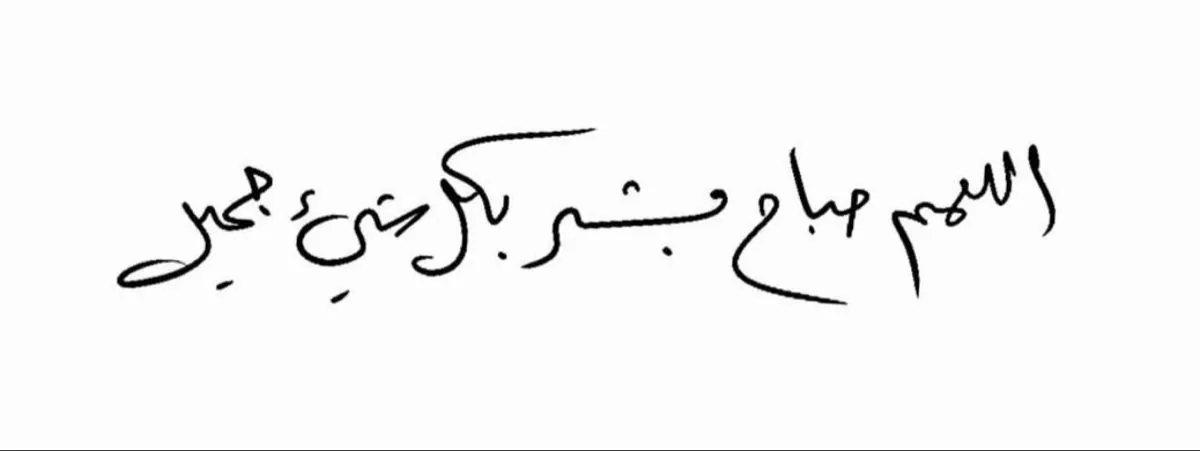 اللهم صباح مبشر بكل شيء جميل